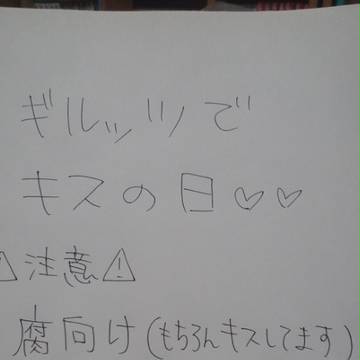 ギルッツで
キスの日♡♡
⚠注意⚠
腐向け(もちろんキスしてます)